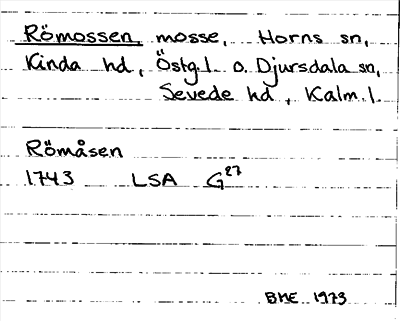 Römossen, mosse, Horns sn,
Kinda hd, Östg.l. o. Djursdala sn,
Sevede hd, Kalm.l.
Römåsen
1743 LSA G27
BME 1973